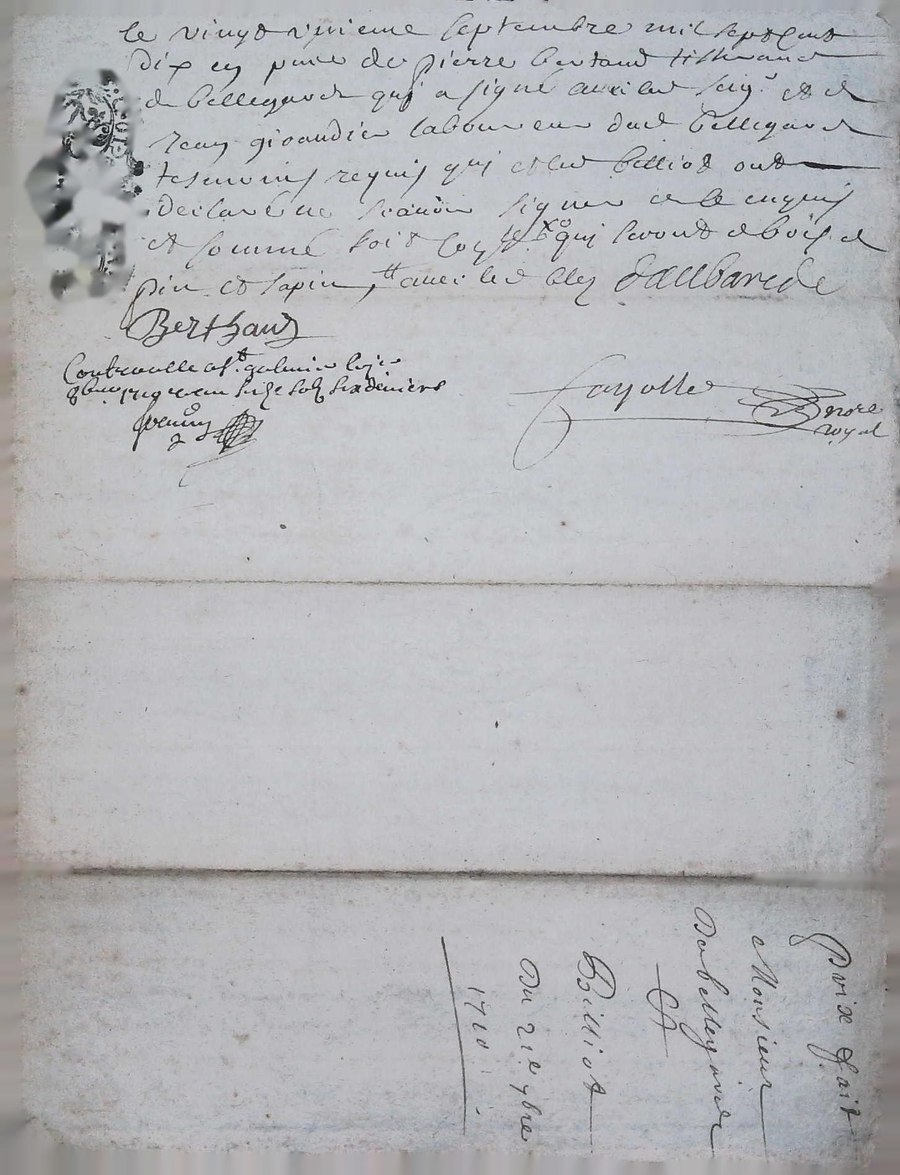 le vingt unieme septembre mil sept cent
dix en pnce de pierre bertaud tisserand
de bellegarde qui a signé avec led seigr et de
jean giraudier laboureur dud bellegarde
tesmoins requis qui et led billiod ont
declaré ne scavoir signer de ce enquis
et sommé soit qui seront de bois de
pin et sapin avec led dallbarede
Berthaud
Controuellé a St galmier
seize sols six deniers
fayolle nore
royal
prix fait
Monsieur
De bellegarde
Et
Billiod
Du 21e 7bre
1710